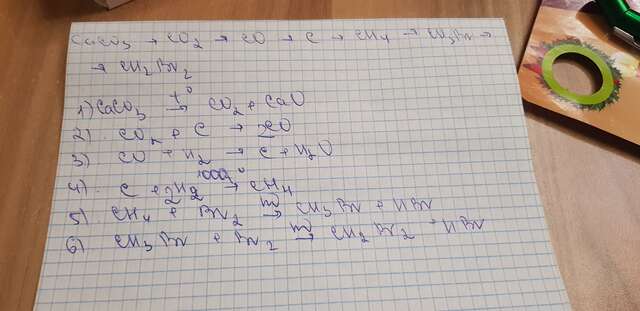 CaCO3 → CO2 → CO → C → CH4 → CH3Br →
→ CH2Br2
1) CaCO3 t° → CO2 + CaO
2) CO2 + C → 2CO
3) CO + H2 → C + H2O
4) C + 2H2 1000° → CH4
5) CH4 + Br2 hν → CH3Br + HBr
6) CH3Br + Br2 hν → CH2Br2 + HBr